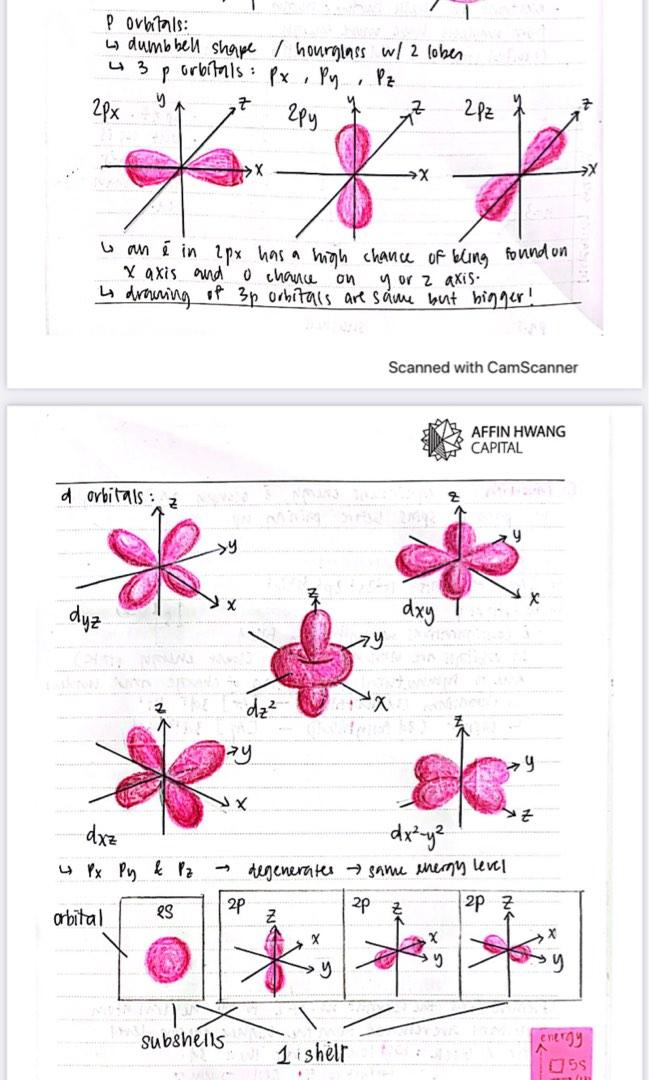 P orbitals:
↳ dumbbell shape / hourglass w/ 2 lobes
↳ 3 p orbitals: Px, Py, Pz
2px y z x
2py y z x
2pz y z x
↳ an ē in 2px has a high chance of being found on
x axis and 0 chance on y or z axis.
↳ drawing of 3p orbitals are same but bigger!
Scanned with CamScanner
AFFIN HWANG
CAPITAL
d orbitals:
z y x
dyz
z y x
dxy
z y x
dz²
z y x
dxz
z y z
dx²-y²
↳ Px Py & Pz → degenerates → same energy level
orbital
2s
2p z x y
2p z x y
2p z x y
subshells
1 shell
energy
5s